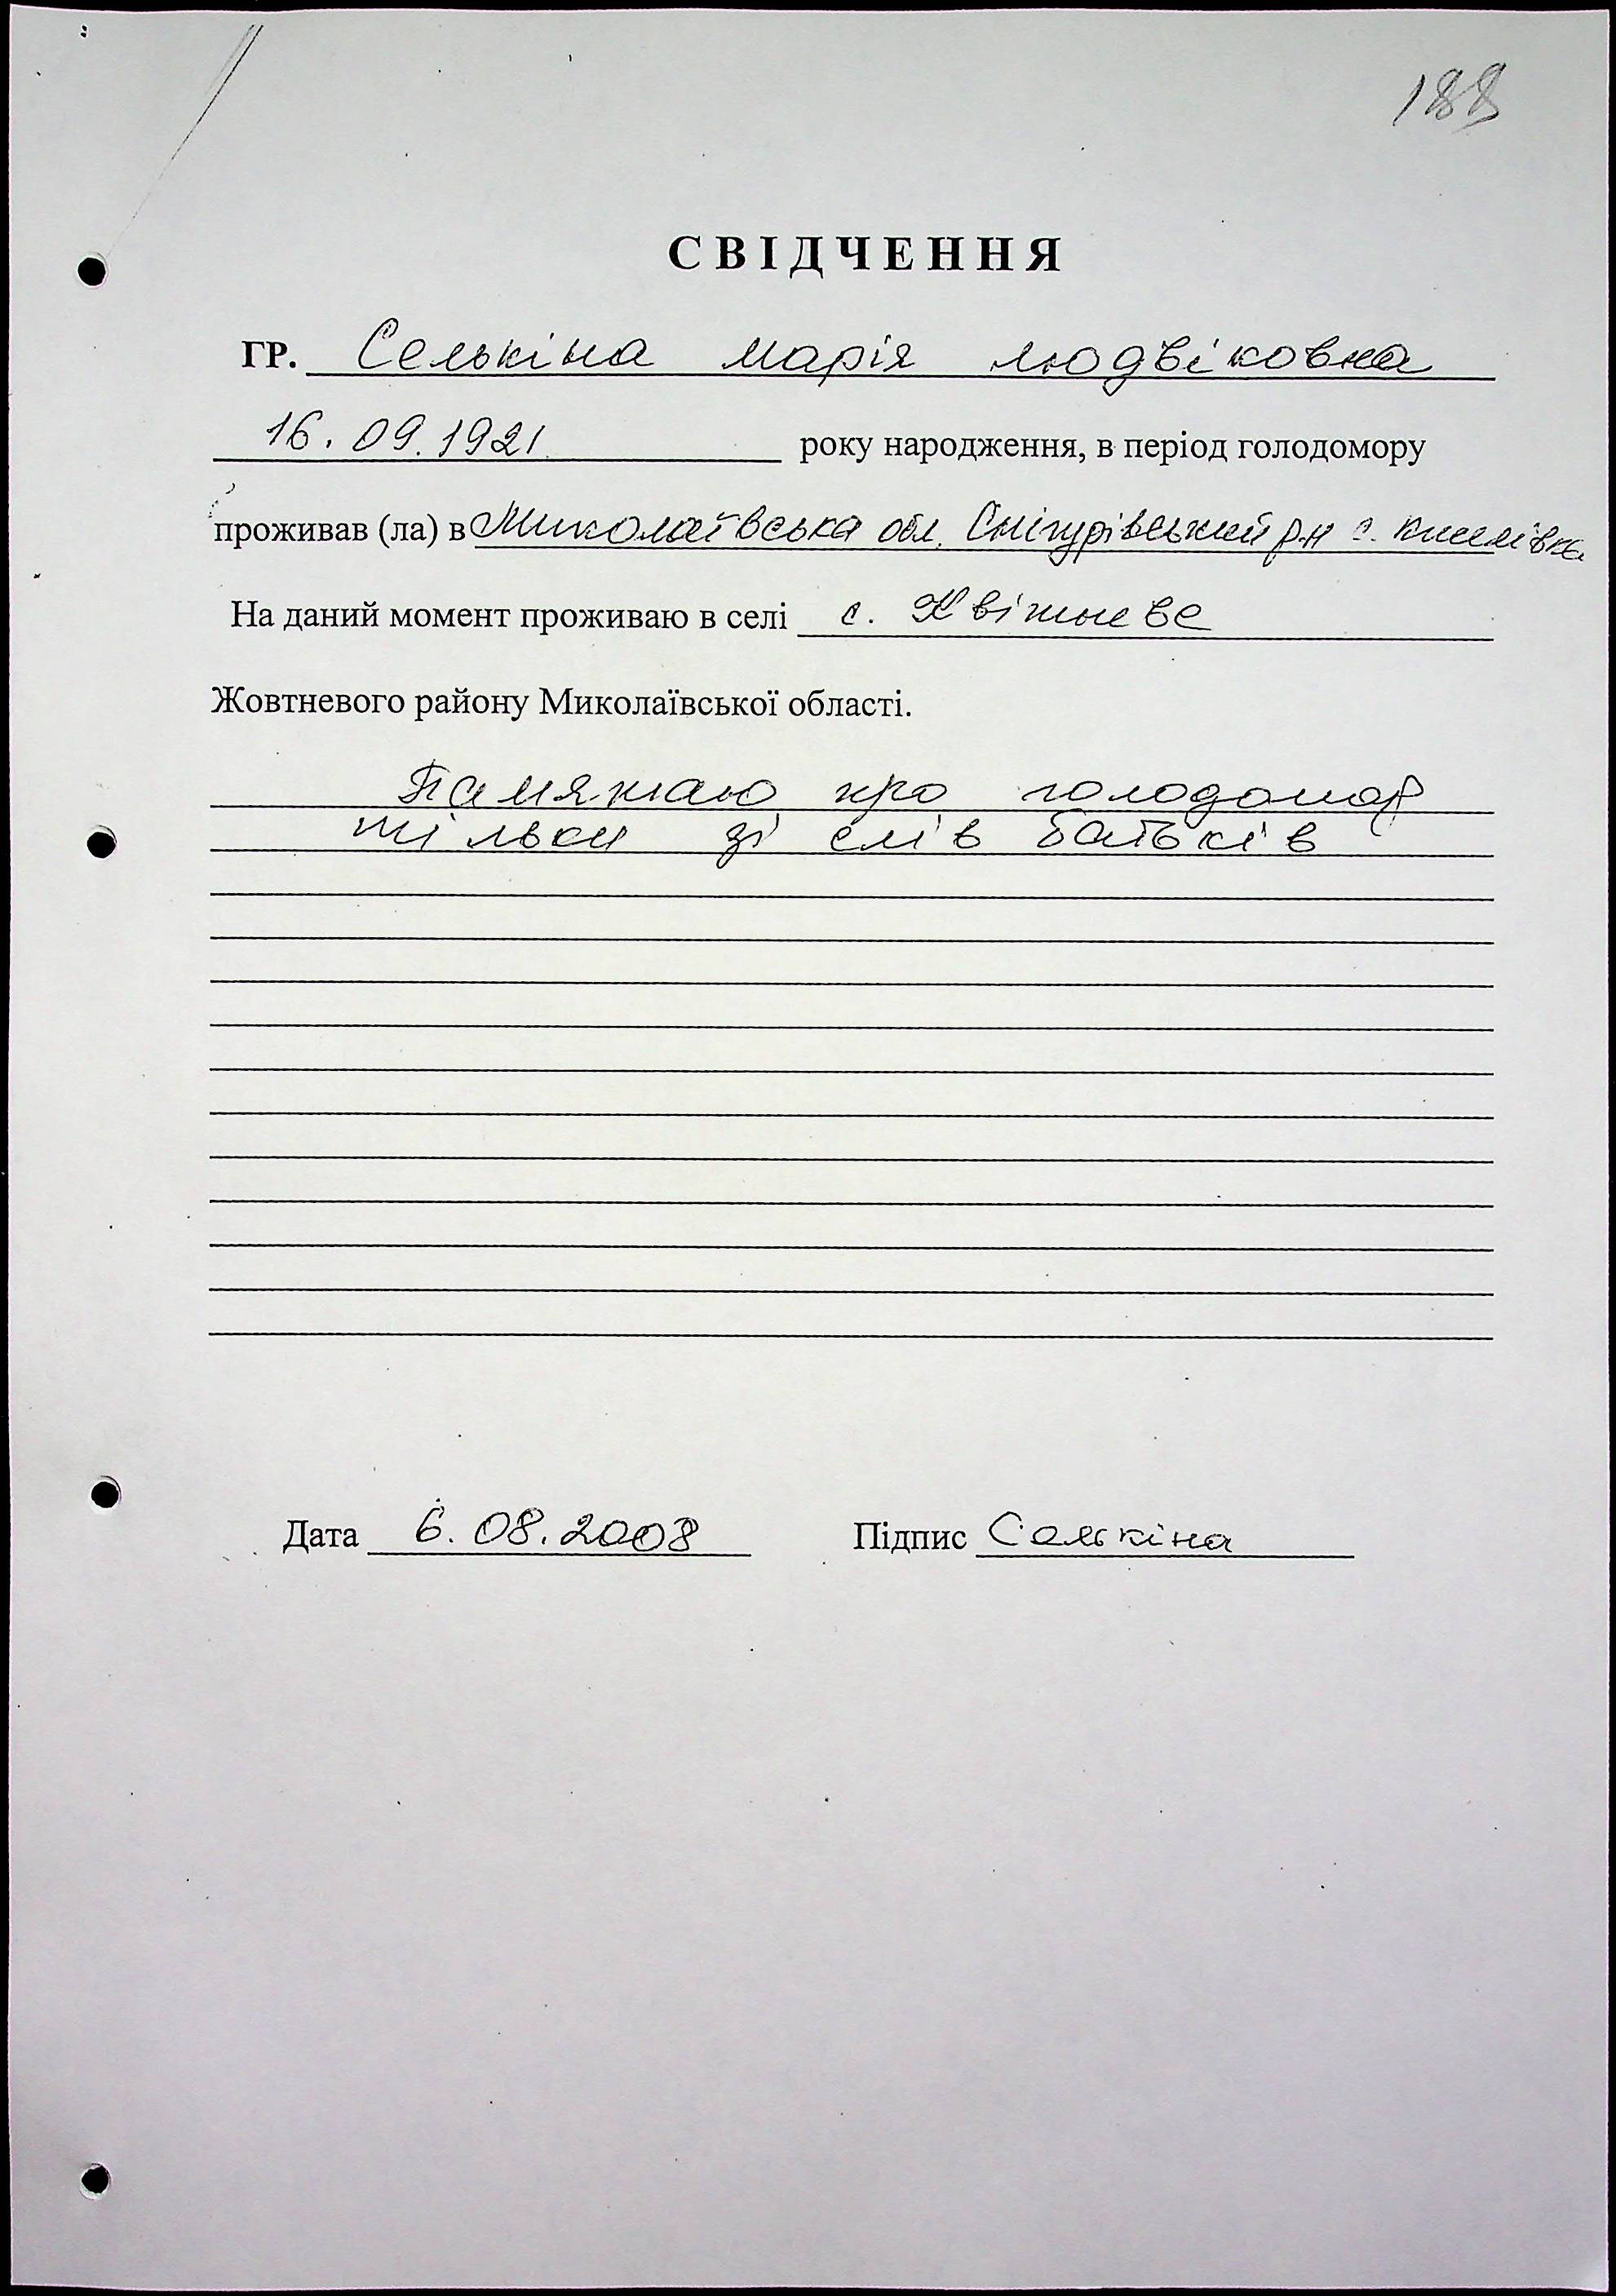 188
СВІДЧЕННЯ
ГР. Селькіна Марія Людвіковна
16.09.1921 року народження, в період голодомору
проживав (ла) в Миколаївська обл. Снігурівський р-н с. Киселівка
На даний момент проживаю в селі с. Квітневе
Жовтневого району Миколаївської області.
Памятаю про голодомор
тільки зі слів батьків
Дата 6.08.2008 Підпис Селькіна